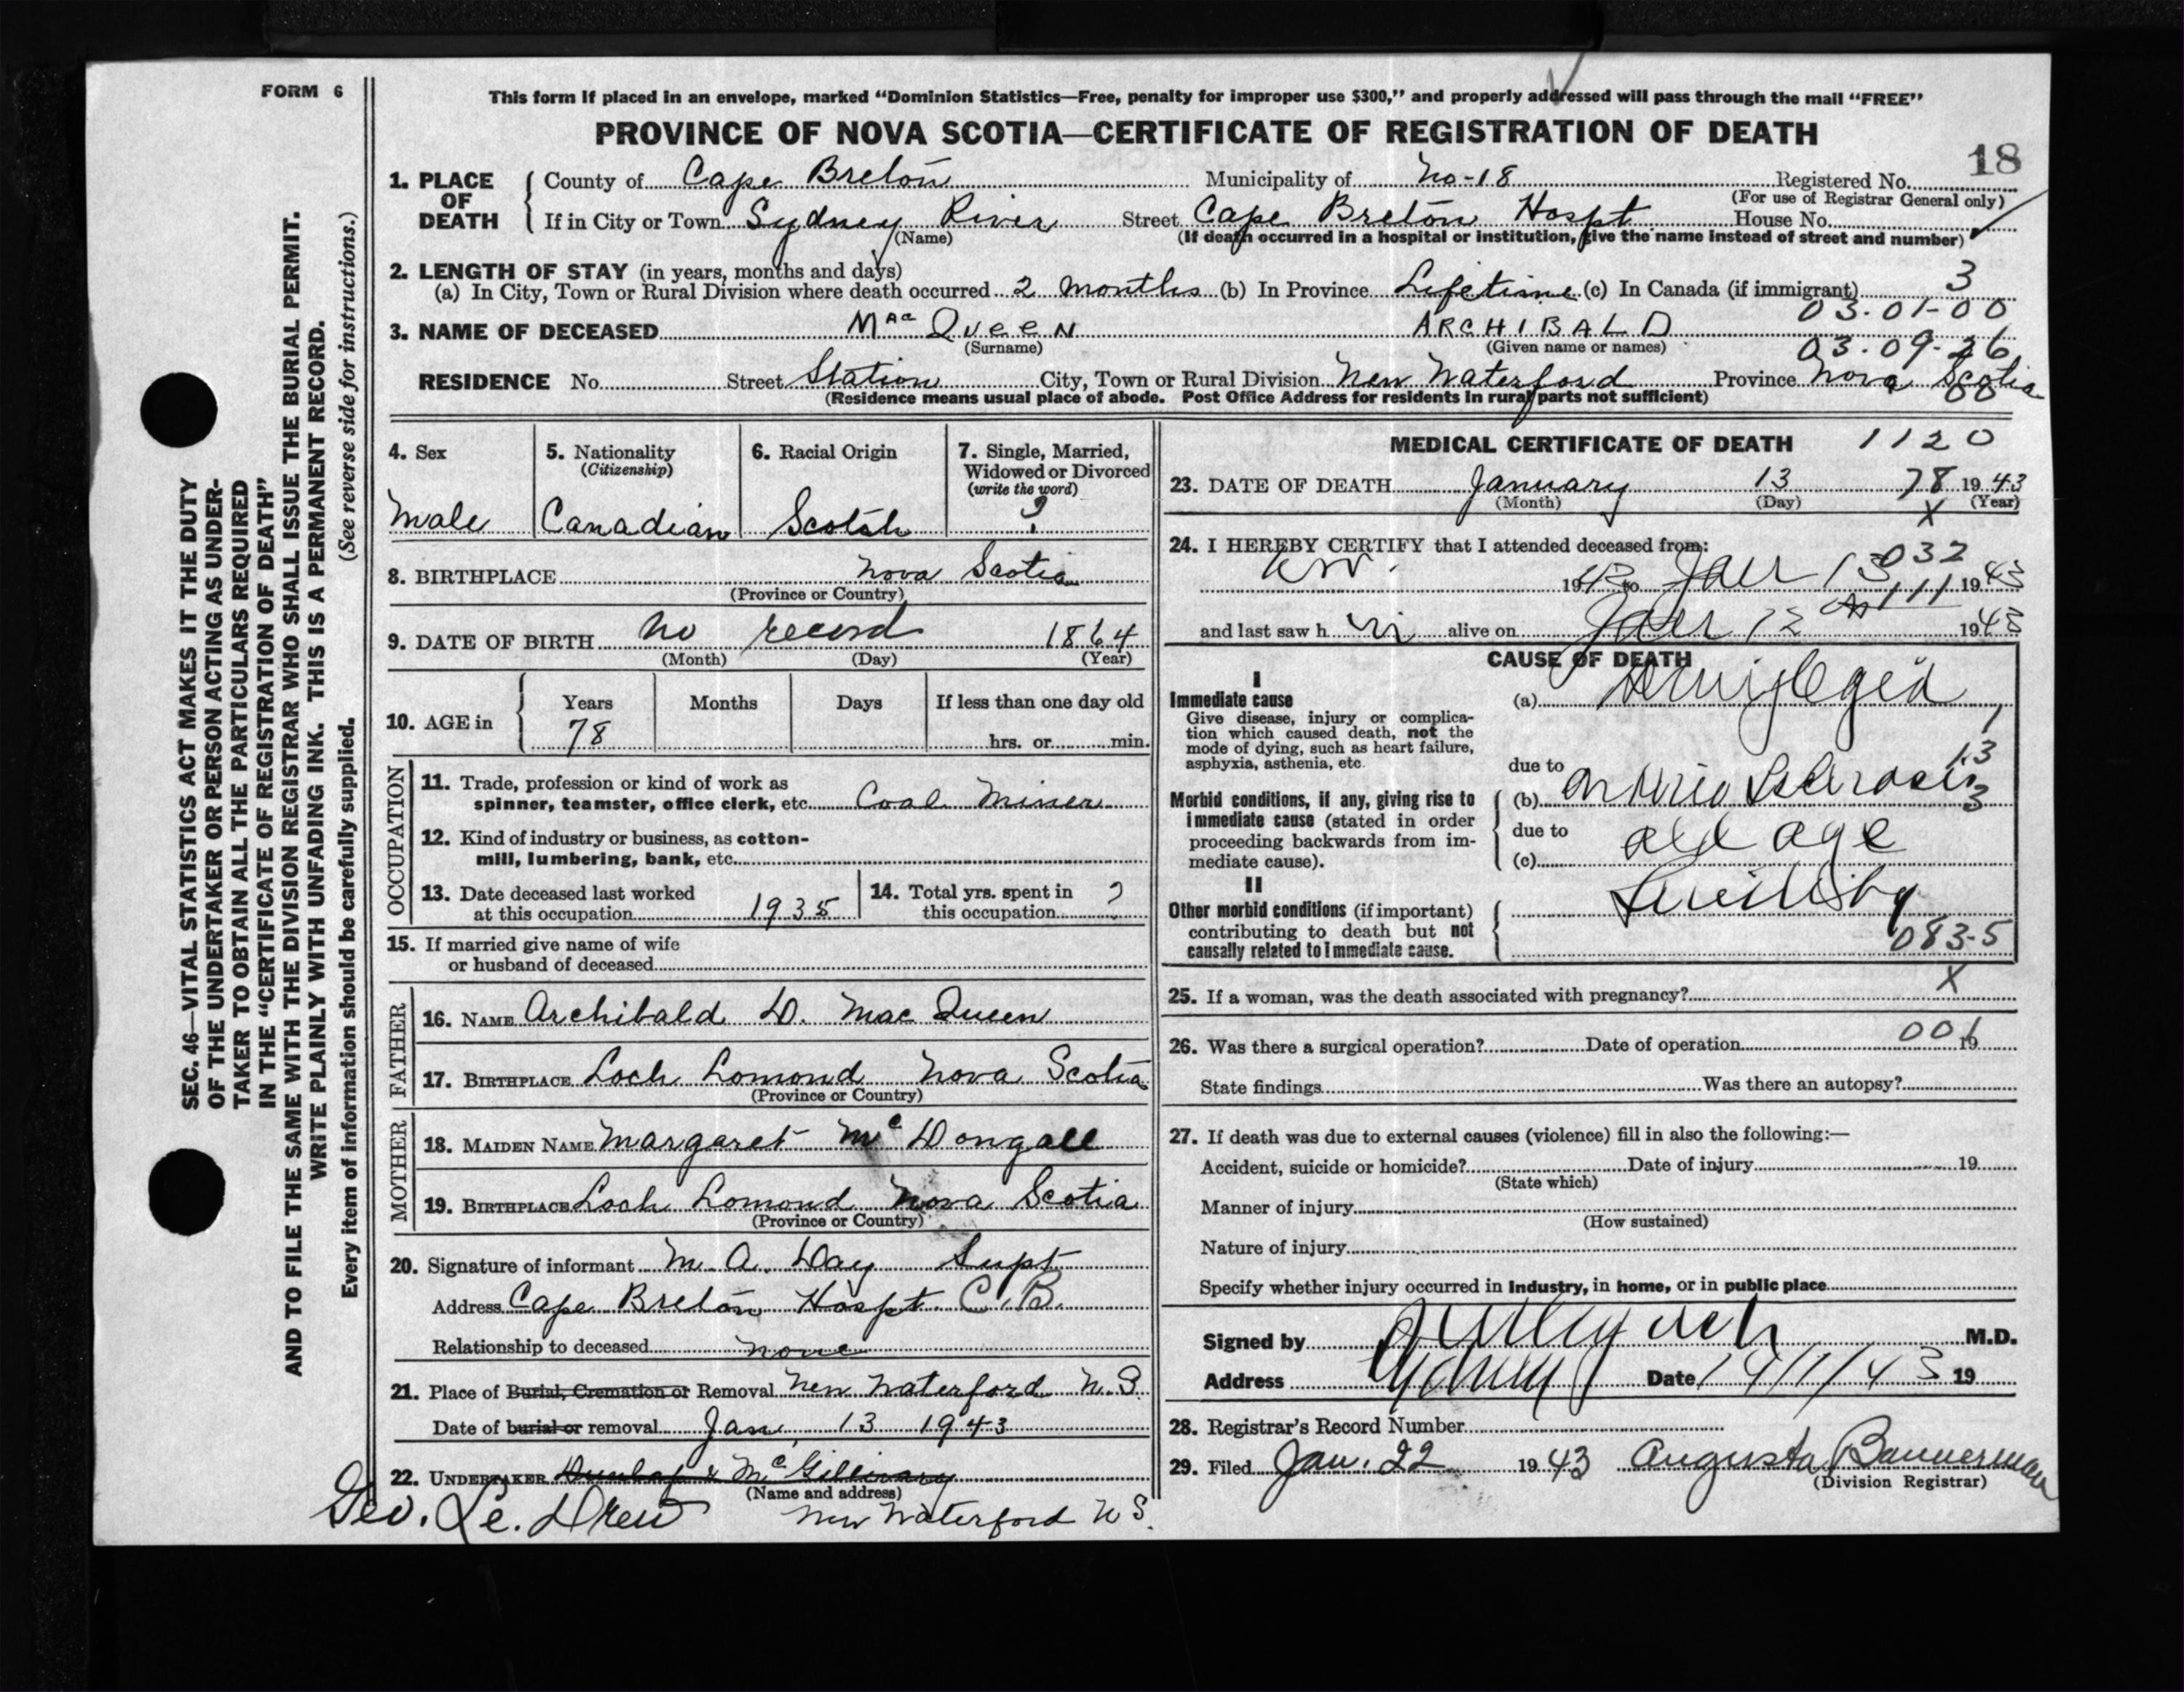 FORM 6
This form if placed in an envelope, marked “Dominion Statistics—Free, penalty for improper use $300,” and properly addressed will pass through the mail “FREE”
PROVINCE OF NOVA SCOTIA—CERTIFICATE OF REGISTRATION OF DEATH
18
1. PLACE OF DEATH County of Cape Breton Municipality of No-18 Registered No.
(For use of Registrar General only)
If in City or Town Sydney River Street Cape Breton Hospt House No.
(Name) (If death occurred in a hospital or institution, give the name instead of street and number)
2. LENGTH OF STAY (in years, months and days)
(a) In City, Town or Rural Division where death occurred 2 months (b) In Province Lifetime (c) In Canada (if immigrant) 3
03-01-00
3. NAME OF DECEASED Mac Queen ARCHIBALD
(Surname) (Given name or names) 03-09-26
RESIDENCE No. Street Station City, Town or Rural Division New Waterford Province Nova Scotia
(Residence means usual place of abode. Post Office Address for residents in rural parts not sufficient)
4. Sex
Male
5. Nationality
(Citizenship)
Canadian
6. Racial Origin
Scotch
7. Single, Married,
Widowed or Divorced
(write the word)
?
8. BIRTHPLACE Nova Scotia
(Province or Country)
9. DATE OF BIRTH No record 1864
(Month) (Day) (Year)
10. AGE in Years Months Days If less than one day old
78 hrs. or min.
OCCUPATION
11. Trade, profession or kind of work as
spinner, teamster, office clerk, etc. Coal Miner
12. Kind of industry or business, as cotton-
mill, lumbering, bank, etc.
13. Date deceased last worked
at this occupation 1935
14. Total yrs. spent in
this occupation ?
15. If married give name of wife
or husband of deceased
FATHER
16. NAME Archibald D. Mac Queen
17. BIRTHPLACE Loch Lomond Nova Scotia
(Province or Country)
MOTHER
18. MAIDEN NAME Margaret Mc Dongall
19. BIRTHPLACE Loch Lomond Nova Scotia
(Province or Country)
20. Signature of informant M. A. Day Supt
Address Cape Breton Hospt. C.B.
Relationship to deceased none
21. Place of Burial, Cremation or Removal New Waterford N.S.
Date of burial or removal Jan 13 1943
22. UNDERTAKER Dunlap & Mc Gillivary
(Name and address)
Geo. Le. Drew New Waterford N S.
MEDICAL CERTIFICATE OF DEATH 1120
23. DATE OF DEATH January 13 78 1943
(Month) (Day) (Year)
X
24. I HEREBY CERTIFY that I attended deceased from:
032
1943 to Jan 13 1943
111
and last saw h alive on Jan 12 1943
CAUSE OF DEATH
I
Immediate cause
Give disease, injury or complica-
tion which caused death, not the
mode of dying, such as heart failure,
asphyxia, asthenia, etc.
(a) Hemiplegia
1
13
due to
Morbid conditions, if any, giving rise to
immediate cause (stated in order
proceeding backwards from im-
mediate cause).
(b) Arterio Sclerosis 3
due to
(c) old age
II
Other morbid conditions (if important)
contributing to death but not
causally related to immediate cause.
Senility
083-5
25. If a woman, was the death associated with pregnancy? X
26. Was there a surgical operation? Date of operation 001 19
State findings Was there an autopsy?
27. If death was due to external causes (violence) fill in also the following:—
Accident, suicide or homicide? Date of injury 19
(State which)
Manner of injury
(How sustained)
Nature of injury
Specify whether injury occurred in industry, in home, or in public place
Signed by M.D.
Address Sydney Date 14/1/43 19
28. Registrar's Record Number
29. Filed Jan. 22 1943 Augusta Bannerman
(Division Registrar)
SEC. 46—VITAL STATISTICS ACT MAKES IT THE DUTY
OF THE UNDERTAKER OR PERSON ACTING AS UNDER-
TAKER TO OBTAIN ALL THE PARTICULARS REQUIRED
IN THE “CERTIFICATE OF REGISTRATION OF DEATH”
AND TO FILE THE SAME WITH THE DIVISION REGISTRAR WHO SHALL ISSUE THE BURIAL PERMIT.
WRITE PLAINLY WITH UNFADING INK. THIS IS A PERMANENT RECORD.
Every item of information should be carefully supplied. (See reverse side for instructions.)